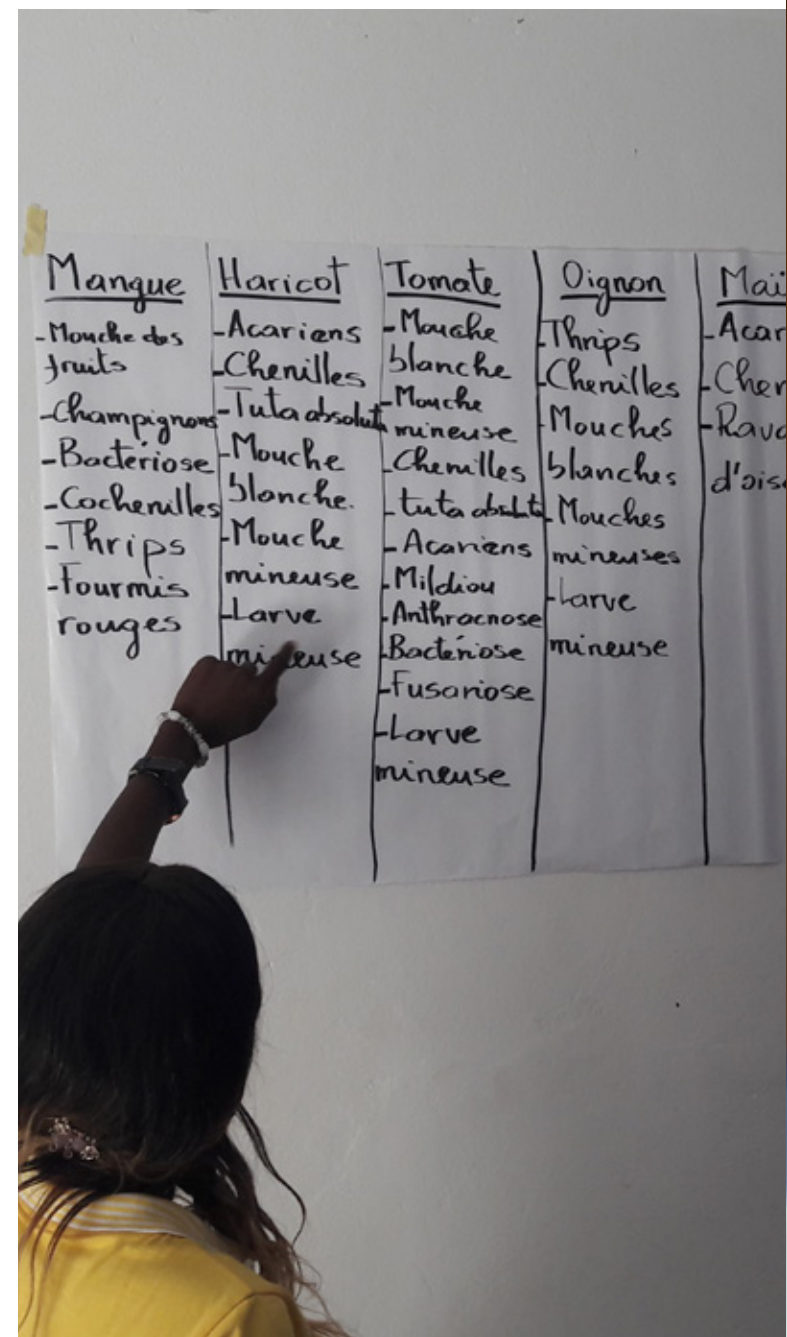 Mangue
-Mouche des
fruits
-Champignons
-Bactériose
-Cochenilles
-Thrips
-Fourmis
rouges
Haricot
-Acariens
-Chenilles
-Tuta absoluta
-Mouche
blanche.
-Mouche
mineuse
-Larve
mineuse
Tomate
-Mouche
blanche
-Mouche
mineuse
-Chenilles
-tuta absoluta
-Acariens
-Mildiou
-Anthracnose
-Bactériose
-Fusariose
-Larve
mineuse
Oignon
-Thrips
-Chenilles
-Mouches
blanches
-Mouches
mineuses
-Larve
mineuse
Maï
-Acar
-Chen
-Rava
d'oise